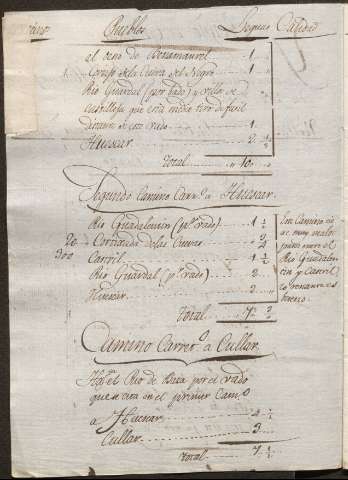 Pueblos Leguas Calidad
al vano de Benamaurel 1
Cortijo de la Cueva del Negro 1
Rio Guardal (por bado) y villa de
Castilleja que está medio tiro de fusil
distante de este vado 1
Huescar 2 ½
Total 10
Segundo Camino Carr.o a Huescar.
Rio Guadalentin (p.r vado) 1 ½
Cortijada de las Cuevas ¾
Carril 1 ½
Rio Guardal (p.r vado) 2
Huescar 2
Total 7 ¾
Este Camino
es muy malo
para entre el
Rio Guadalen
tin y Carril
lo restante es
bueno.
20
300
Camino Carrer.o a Cullar.
Hasta el Rio de Baza por el vado
que se cita en el primer Cam.o
a Huescar 4 ½
Cullar 3
Total 7 ½